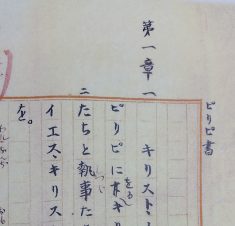 ピリピ書
第一章一 キリスト・
ピリピに キリ
二たちと執事た
イエス・キリス
を。